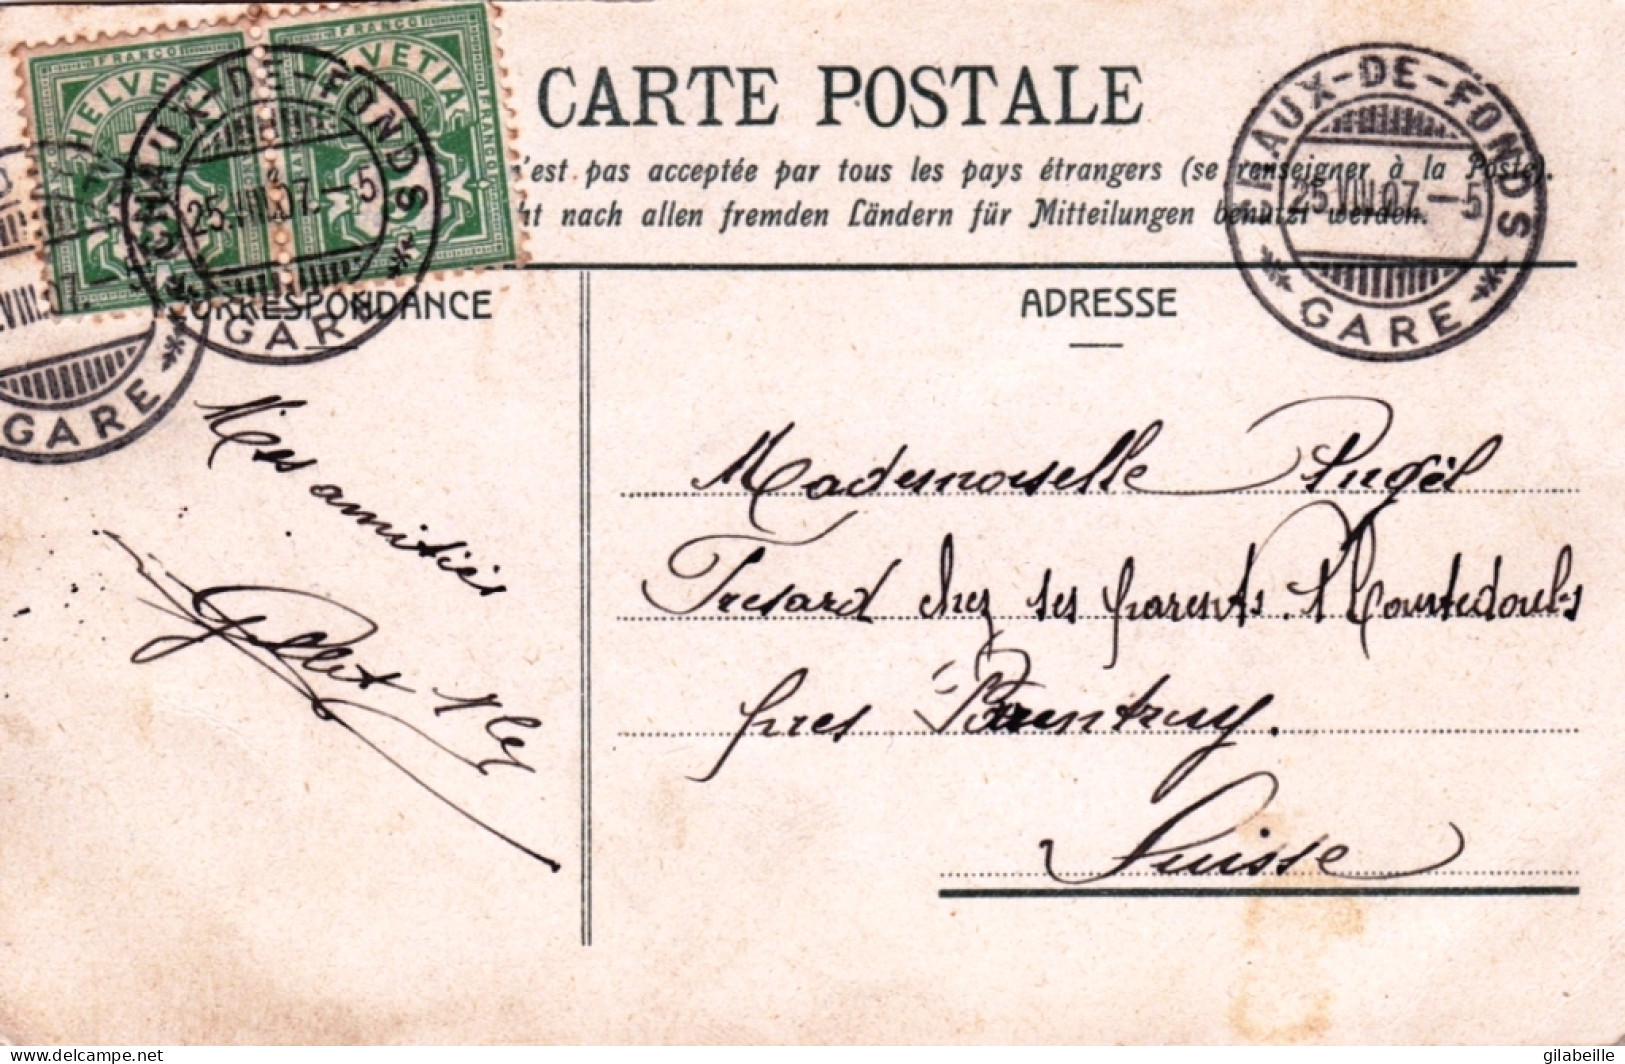 FRANCO HELVETIA FRANCO
FRANCO HELVETIA FRANCO
CHAUX-DE-FONDS
25.VIII.07.–5
GARE
VIII.07.–5
GARE
CHAUX-DE-FONDS
25.VIII.07.–5
GARE
CARTE POSTALE
n'est pas acceptée par tous les pays étrangers (se renseigner à la Poste).
ht nach allen fremden Ländern für Mitteilungen benutzt werden.
CORRESPONDANCE
ADRESSE
Mes amitiés
Mademoiselle
chez ses parents
pres Porrentruy.
Suisse
delcampe.net
gilabeille